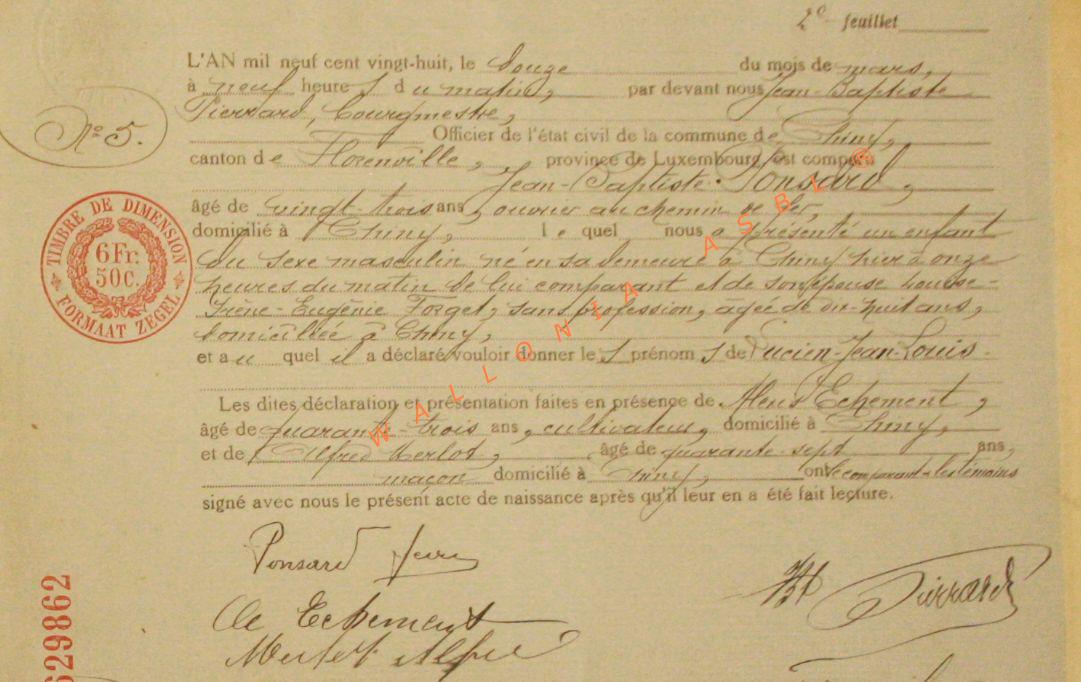 2e feuillet
L'AN mil neuf cent vingt-huit, le douze du mois de mars,
à neuf heures du matin, par devant nous Jean-Baptiste
Pierrard, bourgmestre,
N° 5.
Officier de l'état civil de la commune de Chiny,
canton de Florenville, province de Luxembourg, est comparu
Jean-Baptiste Ponsard,
âgé de vingt-trois ans, ouvrier au chemin de fer,
domicilié à Chiny, lequel nous a présenté un enfant
du sexe masculin né en sa demeure à Chiny hier à onze
heures du matin de lui comparant et de son épouse
Irène-Eugénie Forget, sans profession, âgée de dix-huit ans,
domiciliée à Chiny,
et auquel il a déclaré vouloir donner les prénoms de Lucien-Jean-Louis
Les dites déclaration et présentation faites en présence de Alexis Echement,
âgé de quarante-trois ans, cultivateur, domicilié à Chiny,
et de Alfred Merlot, âgé de quarante-sept ans,
maçon domicilié à Chiny, ont le comparant et les témoins
signé avec nous le présent acte de naissance après qu'il leur en a été fait lecture.
TIMBRE DE DIMENSION
6 Fr.
50 C.
FORMAAT ZEGEL
WALLONIA ASBL ©
Ponsard Jean
Pierrard
Echement
Merlot Alfred
629862